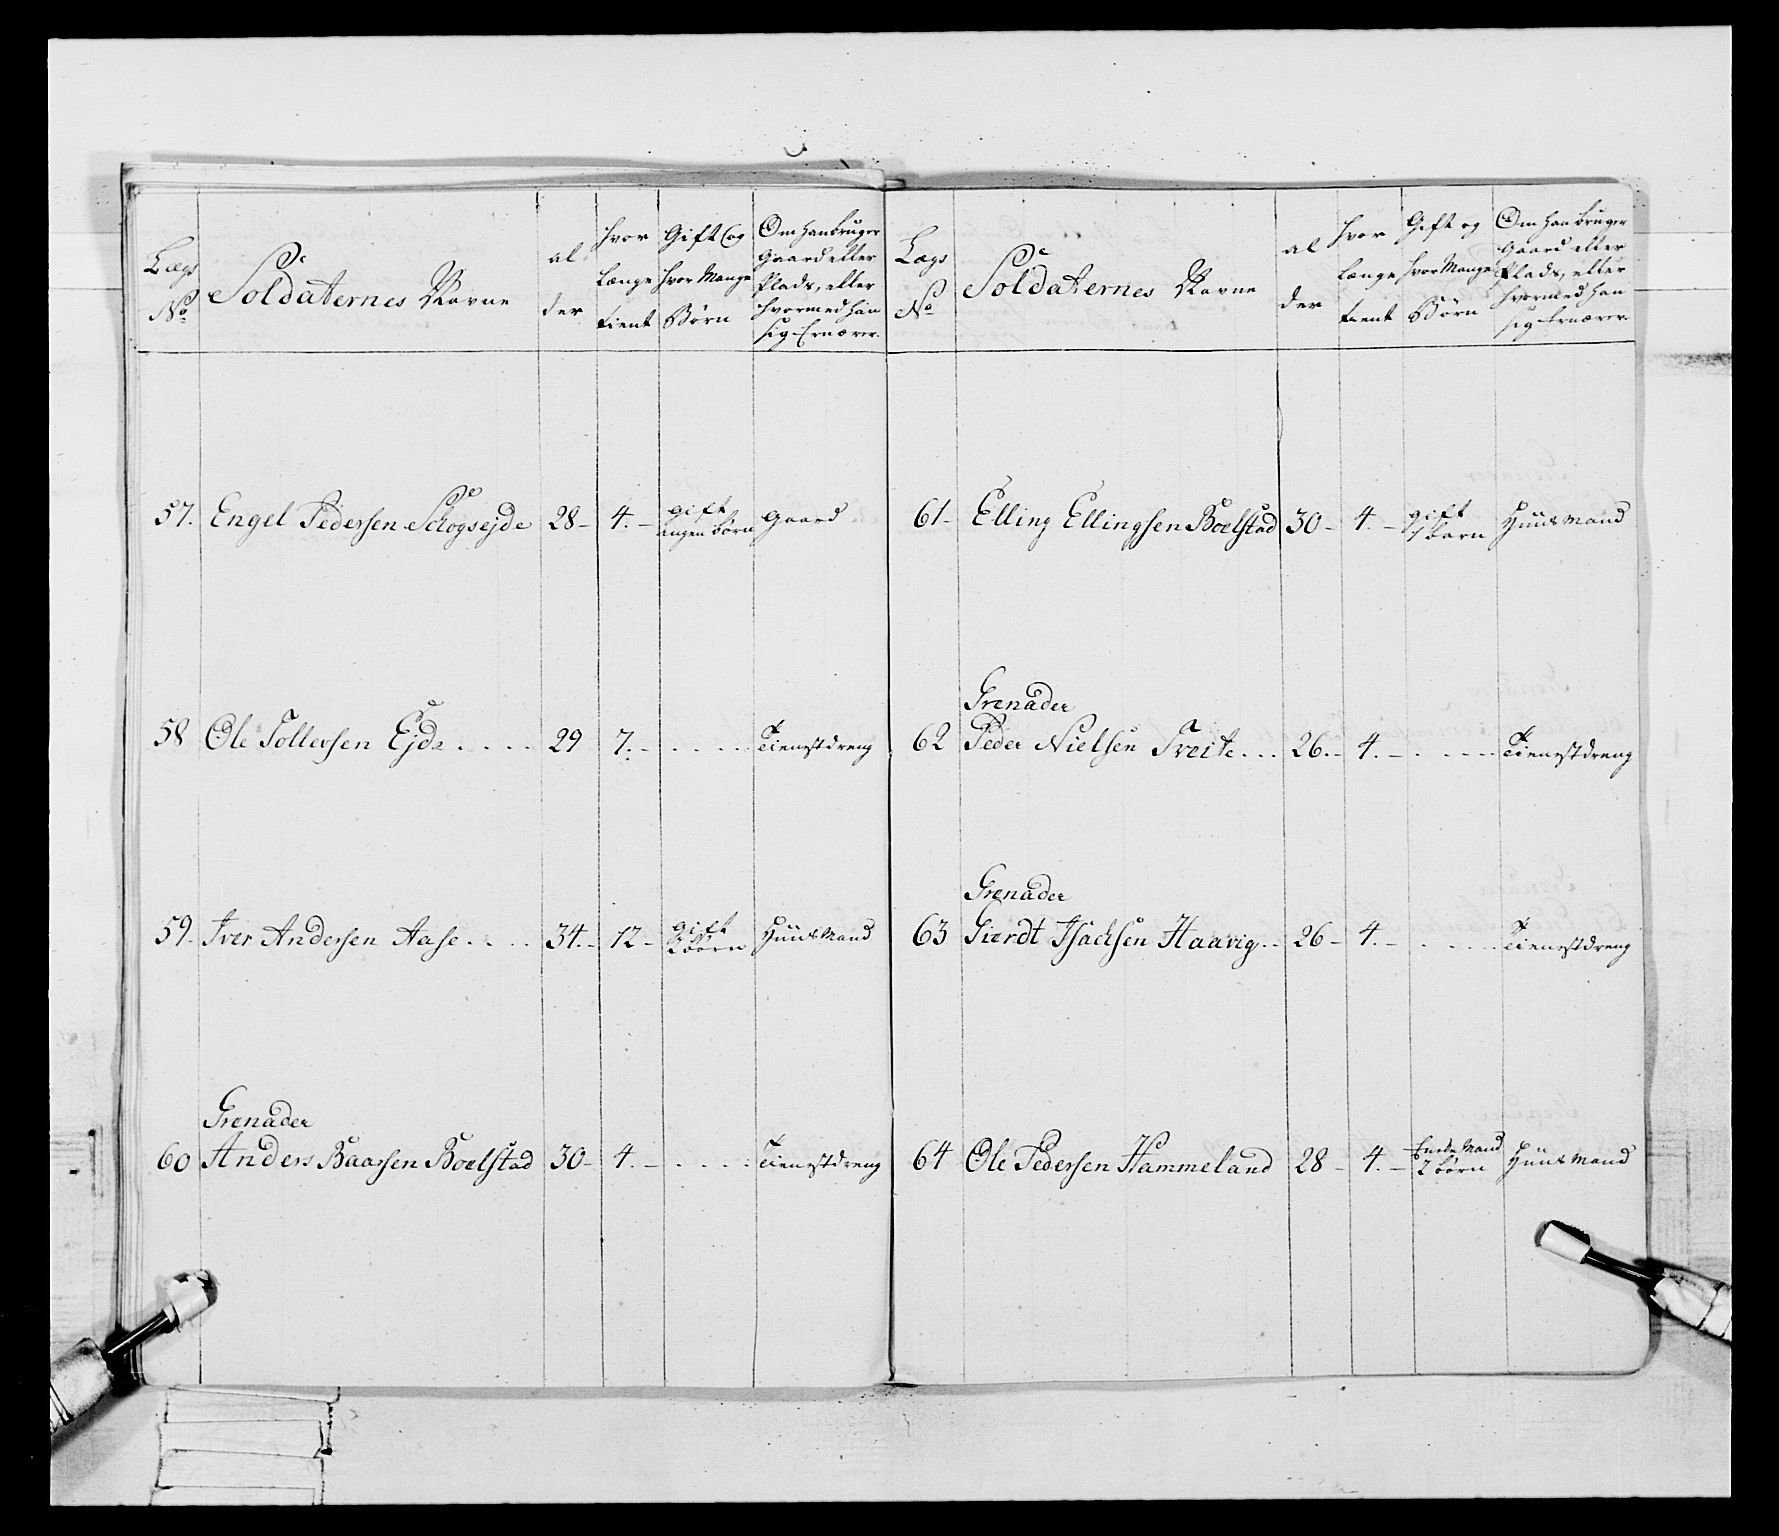 Lægs No Soldaternes Navne al der hvor længe tient Gift og hvor Mange Børn Om han bruger Gaard eller Plads, eller hvormed han sig Ernærer.
57. Engel Pedersen Schogsejde 28 - 4. - gift ingen børn Gaard
58 Ole Tollevsen Ejde . . . . 29 7. - . . . . Tienestdreng
59. Iver Andersen Aase . . . . 34. - 12 - gift 2 børn Huusmand
Grenader
60 Anders Baarsen Boelstad 30 - 4. - . . . . Tienestdreng
Lægs No Soldaternes Navne al der hvor længe tient Gift og hvor Mange Børn Om han bruger Gaard eller Plads, eller hvormed han sig Ernærer.
61 - Elling Ellingsen Boelstad 30 - 4. - gift 1 barn Huusmand
Grenader
62 Peder Nielsen Treite . . . 26. - 4. - . . . . Tienestdreng
Grenader
63 Gierdt Isachsen Haavig . . 26 - 4. - . . . . Tienestdreng
64 Ole Pedersen Hammeland 28 - 4. - Enke Mand 2 børn Huusmand